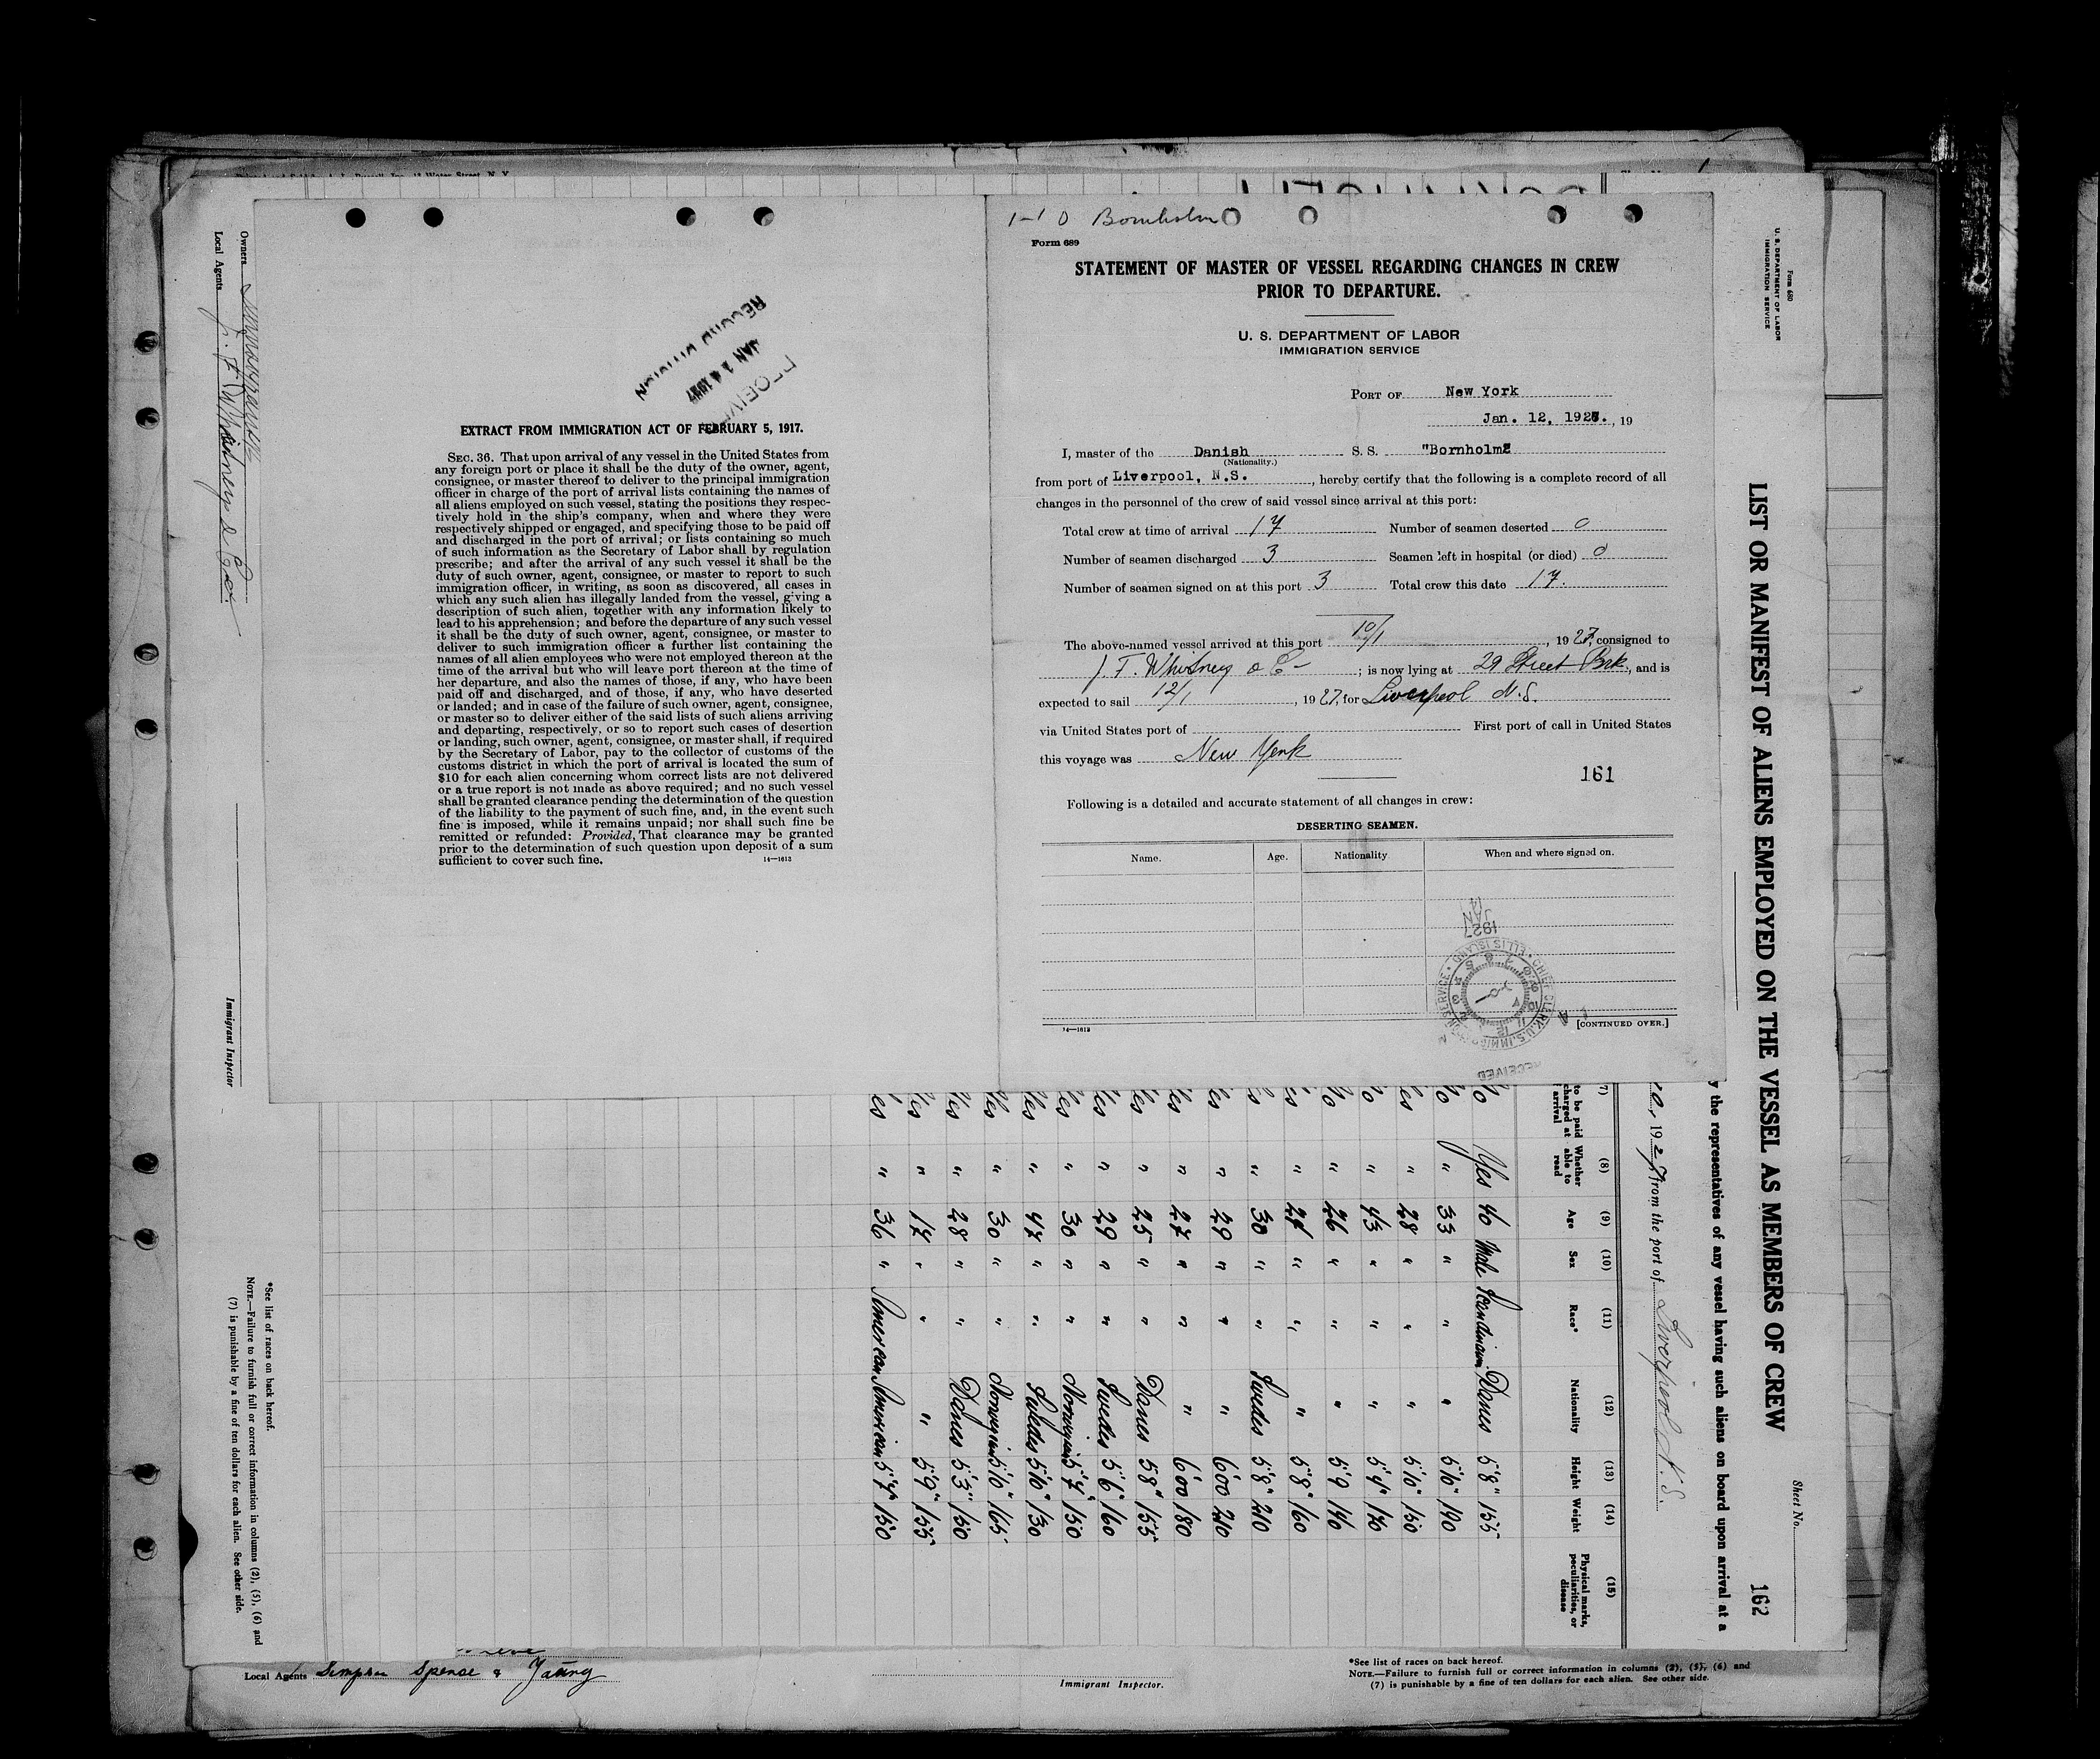 1-10 Bornholm
Form 689
STATEMENT OF MASTER OF VESSEL REGARDING CHANGES IN CREW
PRIOR TO DEPARTURE.
U. S. DEPARTMENT OF LABOR
IMMIGRATION SERVICE
PORT OF New York
Jan. 12, 1927. , 19
I, master of the Danish S. S. "Bornholm"
(Nationality.)
from port of Liverpool, N.S. , hereby certify that the following is a complete record of all
changes in the personnel of the crew of said vessel since arrival at this port:
Total crew at time of arrival 17 Number of seamen deserted 0
Number of seamen discharged 3 Seamen left in hospital (or died) 0
Number of seamen signed on at this port 3 Total crew this date 17.
The above-named vessel arrived at this port 10/1 , 1927, consigned to
J. F. Whitney & Co ; is now lying at 29 Street Brk. , and is
expected to sail 12/1 , 1927, for Liverpool N.S.
via United States port of First port of call in United States
this voyage was New York
161
Following is a detailed and accurate statement of all changes in crew:
DESERTING SEAMEN.
Name. Age. Nationality When and where signed on.
14—1613
[CONTINUED OVER.]
1927
JAN
14
CHIEF CLERK, U.S. IMMIGRATION SERVICE · ELLIS ISLAND
RECEIVED
RECEIVED
JAN 14 1927
RECORD DIVISION
EXTRACT FROM IMMIGRATION ACT OF FEBRUARY 5, 1917.
SEC. 36. That upon arrival of any vessel in the United States from
any foreign port or place it shall be the duty of the owner, agent,
consignee, or master thereof to deliver to the principal immigration
officer in charge of the port of arrival lists containing the names of
all aliens employed on such vessel, stating the positions they respec-
tively hold in the ship's company, when and where they were
respectively shipped or engaged, and specifying those to be paid off
and discharged in the port of arrival; or lists containing so much
of such information as the Secretary of Labor shall by regulation
prescribe; and after the arrival of any such vessel it shall be the
duty of such owner, agent, consignee, or master to report to such
immigration officer, in writing, as soon as discovered, all cases in
which any such alien has illegally landed from the vessel, giving a
description of such alien, together with any information likely to
lead to his apprehension; and before the departure of any such vessel
it shall be the duty of such owner, agent, consignee, or master to
deliver to such immigration officer a further list containing the
names of all alien employees who were not employed thereon at the
time of the arrival but who will leave port thereon at the time of
her departure, and also the names of those, if any, who have been
paid off and discharged, and of those, if any, who have deserted
or landed; and in case of the failure of such owner, agent, consignee,
or master so to deliver either of the said lists of such aliens arriving
and departing, respectively, or so to report such cases of desertion
or landing, such owner, agent, consignee, or master shall, if required
by the Secretary of Labor, pay to the collector of customs of the
customs district in which the port of arrival is located the sum of
$10 for each alien concerning whom correct lists are not delivered
or a true report is not made as above required; and no such vessel
shall be granted clearance pending the determination of the question
of the liability to the payment of such fine, and, in the event such
fine is imposed, while it remains unpaid; nor shall such fine be
remitted or refunded: Provided, That clearance may be granted
prior to the determination of such question upon deposit of a sum
sufficient to cover such fine.
14—1613
Form 680
U. S. DEPARTMENT OF LABOR
IMMIGRATION SERVICE
Sheet No.
162
LIST OR MANIFEST OF ALIENS EMPLOYED ON THE VESSEL AS MEMBERS OF CREW
y the representatives of any vessel having such aliens on board upon arrival at a
10, 1927 from the port of Liverpool N. S.
(8) (9) (10) (11) (12) (13) (14) (15)
to be paid charged at arrival Whether able to read Age Sex Race* Nationality Height Weight Physical marks, peculiarities, or disease
Yes 40 Male Scandinavn. Danes 5'8" 155
" 33 " " " 5'10" 190
" 28 " " " 5'10" 150
" 43 " " " 5'4" 170
" 26 " " " 5'9 140
" 27 " " " 5'8" 160
" 30 " " Swedes 5'8" 210
" 29 " " " 6'00 210
" 27 " " " 6'00 180
" 25 " " Danes 5'8" 155
" 29 " " Swedes 5'6" 160
" 30 " " Norwegian 5'7" 150
" 47 " " Swedes 5'10" 130
" 30 " " Norwegian 5'10" 165
" 28 " " Danes 5'3" 150
" 17 " " " 5'9" 155
" 36 " American American 5'7" 150
Owners
Local Agents J. F. Whitney & Co.
Immigrant Inspector
*See list of races on back hereof.
NOTE.—Failure to furnish full or correct information in columns (2), (5), (6) and
(7) is punishable by a fine of ten dollars for each alien. See other side.
Local Agents Simpson Spence & Young
Immigrant Inspector.
*See list of races on back hereof.
NOTE.—Failure to furnish full or correct information in columns (2), (5), (6) and
(7) is punishable by a fine of ten dollars for each alien. See other side.